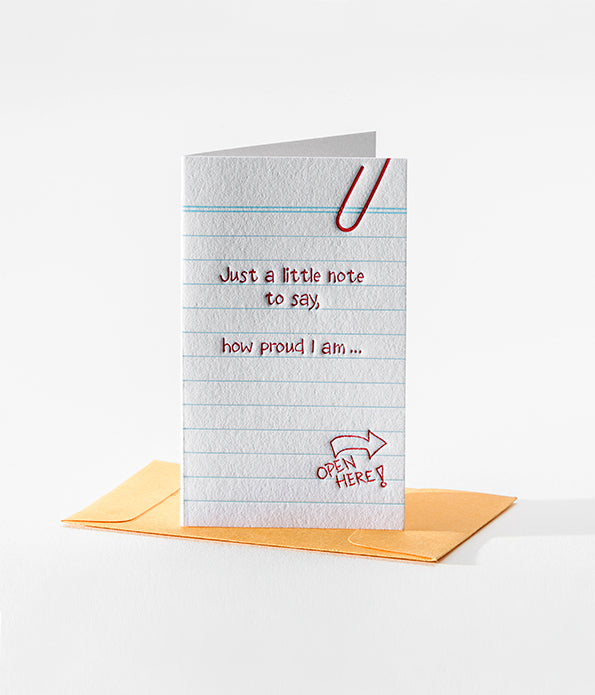 Just a little note
to say,
how proud I am...
OPEN
HERE!